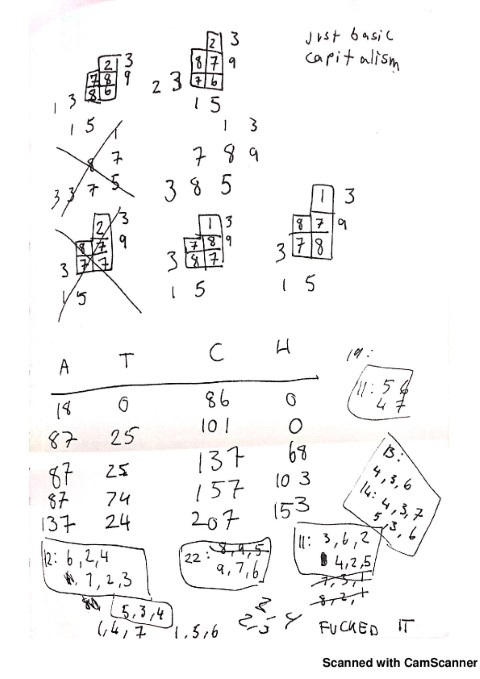 just basic
capitalism
2 3
8 7 9
7 6
2 3
1 5
2 3
7 8 9
8 6
1 3
1 5
1 3
7 8 9
3 8 5
1
8 7
3 3 7 5
2 3
8 7 9
3 7 7
1 5
1 3
7 8 9
3 8 7
1 5
1 3
8 7 9
3 7 8
1 5
A T C H
18 0 86 0
87 25 101 0
87 25 137 68
87 74 157 103
137 24 207 153
19:
11: 5 6
4 7
13:
4, 3, 6
14: 4, 3, 7
5, 3, 6
12: 6, 2, 4
7, 2, 3
5, 3, 4
1, 4, 7 1, 5, 6
22: 8, 9, 5
9, 7, 6
11: 3, 6, 2
4, 2, 5
7, 3, 1
8, 2, 1
FUCKED IT
Scanned with CamScanner